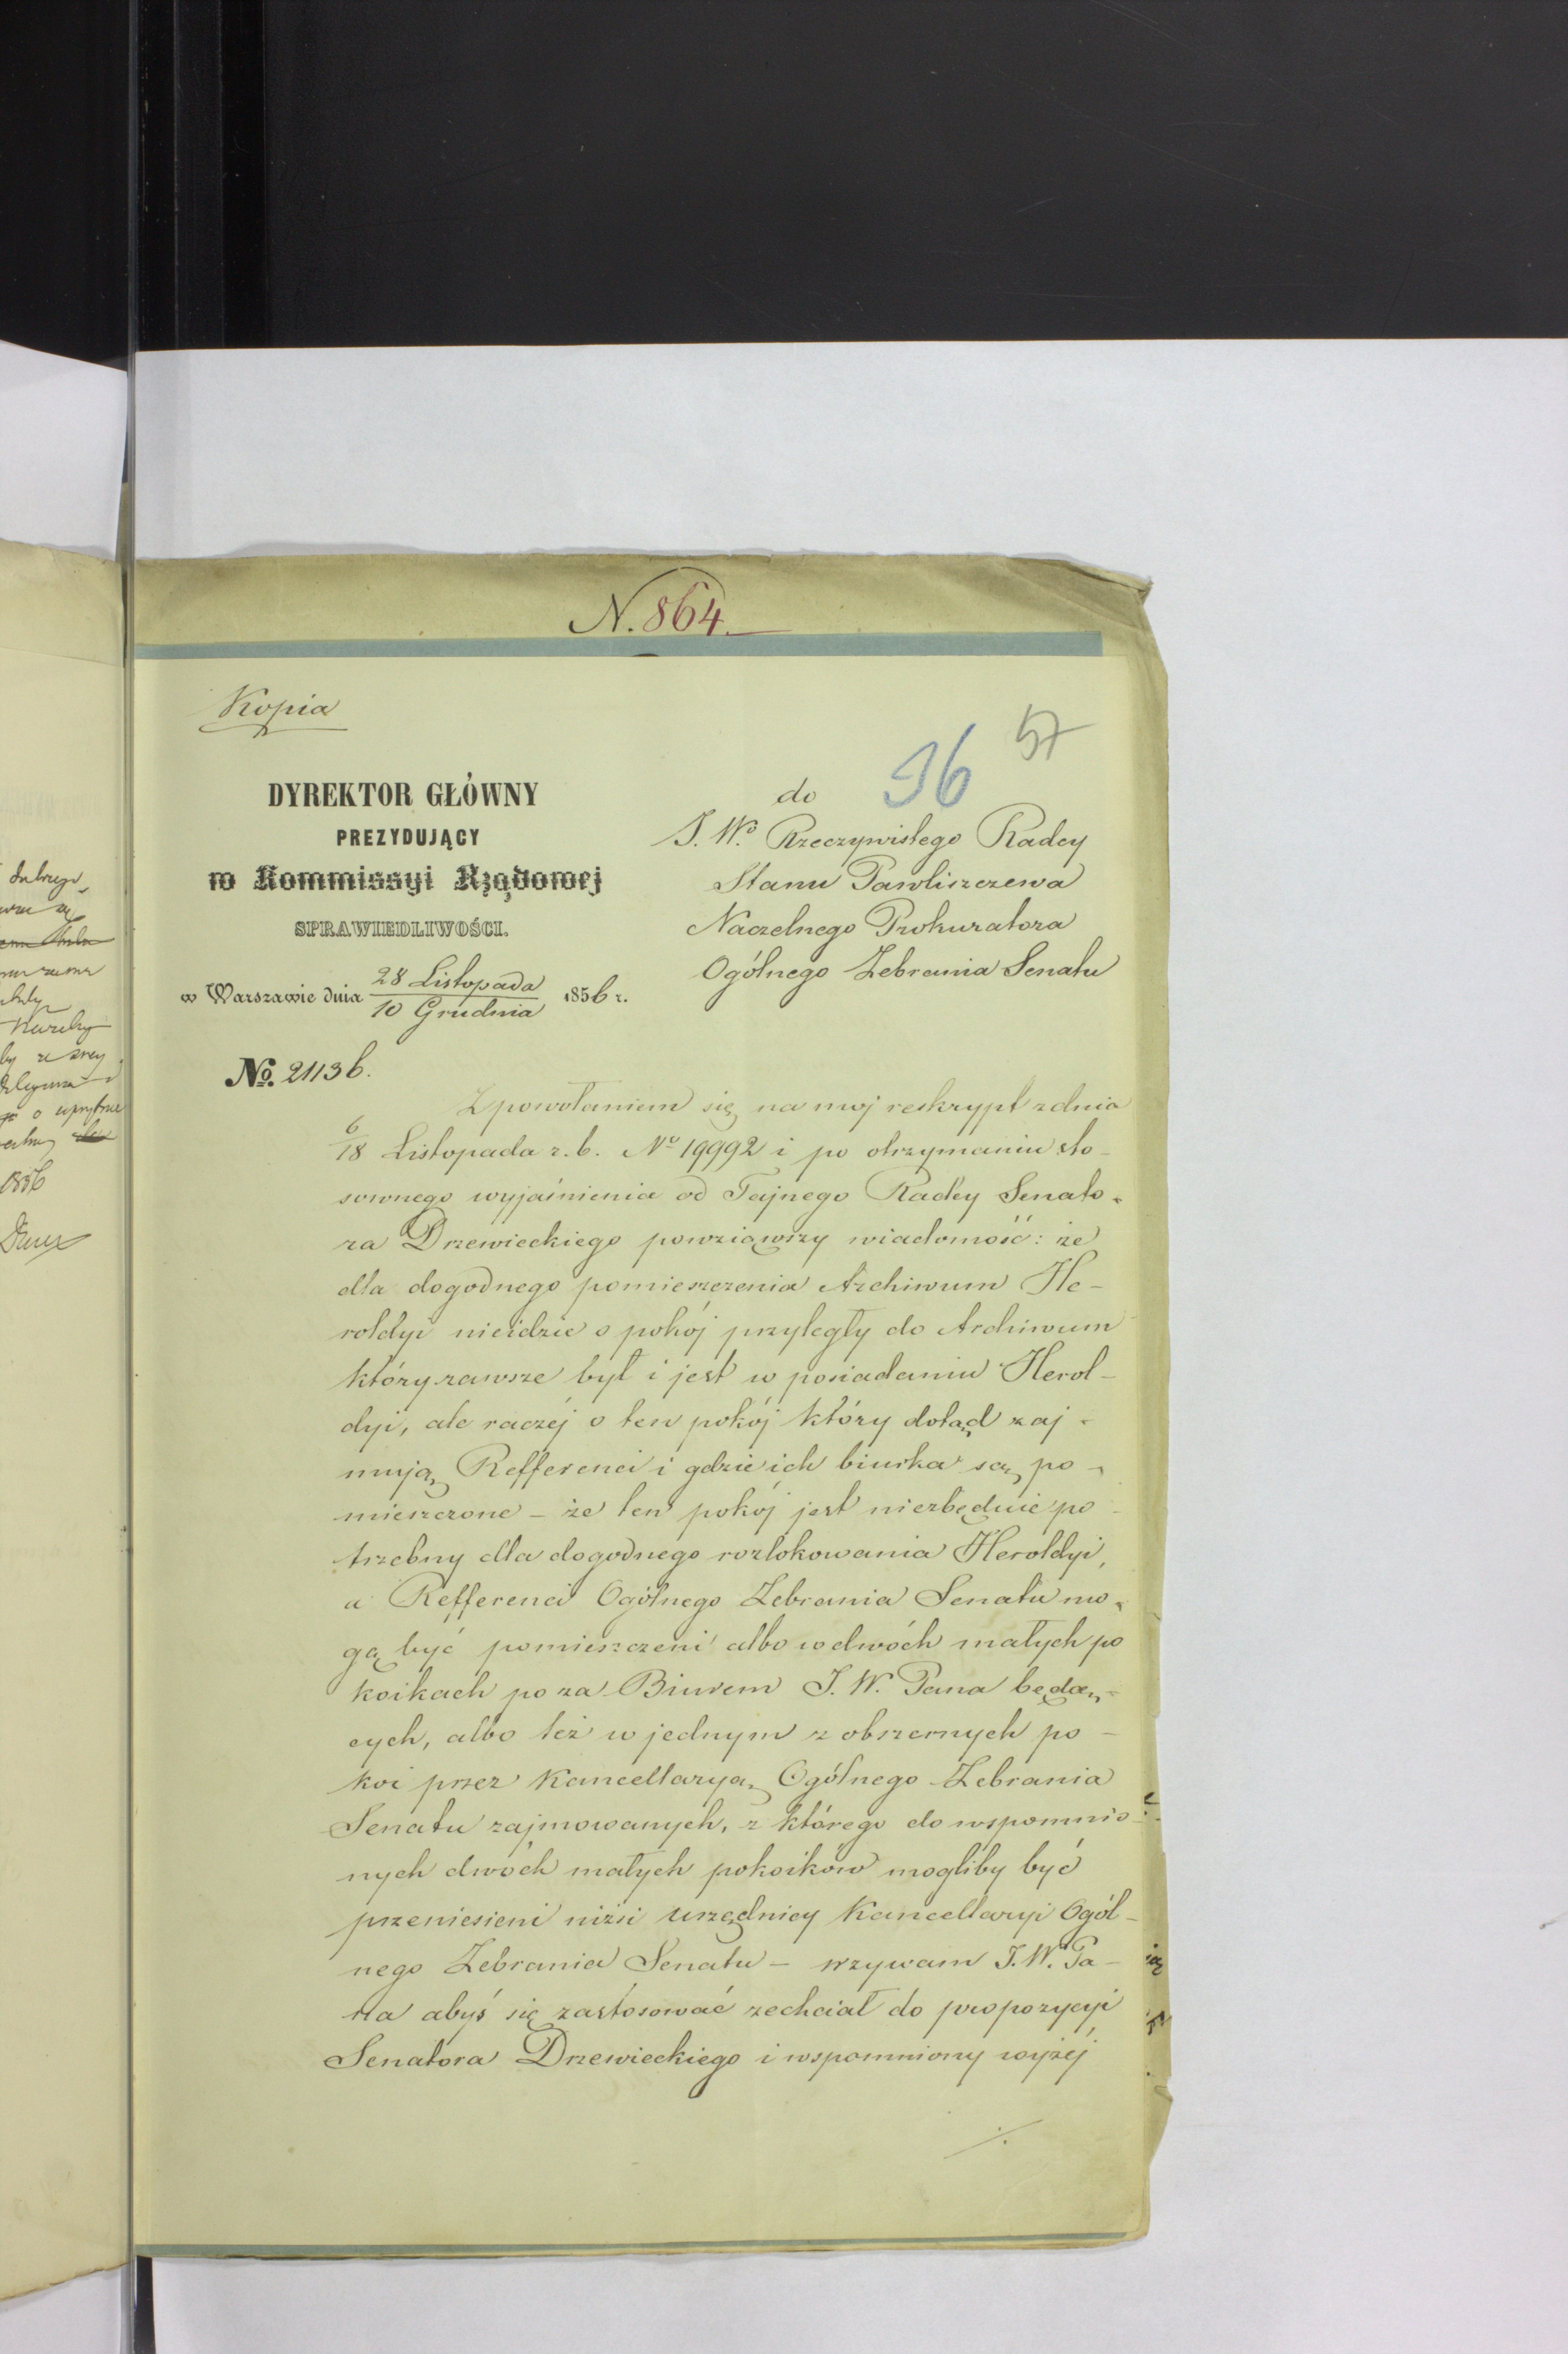 N. 864.
Kopia
36 57
DYREKTOR GŁÓWNY
PREZYDUJĄCY
w Kommissyi Rządowej
SPRAWIEDLIWOŚCI.
w Warszawie dnia 28 Listopada / 10 Grudnia 1856 r.
No. 21136.
do
J. Wo. Rzeczywistego Radcy
Stanu Pawliszczewa
Naczelnego Prokuratora
Ogólnego Zebrania Senatu
Z powołaniem się na mój reskrypt z dnia
6/18 Listopada r. b. No 19992 i po otrzymaniu sto-
sownego wyjaśnienia od Tajnego Radcy Senato-
ra Drzewieckiego powziąwszy wiadomość: że
dla dogodnego pomieszczenia Archiwum He-
roldyi nieidzie o pokój przyległy do Archiwum
który zawsze był i jest w posiadaniu Herol-
dyi, ale raczéj o ten pokój który dotąd zaj-
mują Refferenci i gdzie ich biurka są po-
mieszczone – że ten pokój jest niezbędnie po-
trzebny dla dogodnego rozlokowania Heroldyi,
a Refferenci Ogólnego Zebrania Senatu mo-
gą być pomieszczeni albo w dwóch małych po
koikach po za Biurem J. W. Pana będą-
cych, albo też w jednym z obszernych po-
koi przez Kancellaryą Ogólnego Zebrania
Senatu zajmowanych, z którego do wspomnio-
nych dwóch małych pokoików mogliby być
przeniesieni niżsi urzędnicy Kancellaryi Ogól-
nego Zebrania Senatu – wzywam J. W. Pa-
na abyś się zastosować zechciał do propozycyi
Senatora Drzewieckiego i wspomniony wyżéj
./.
1856